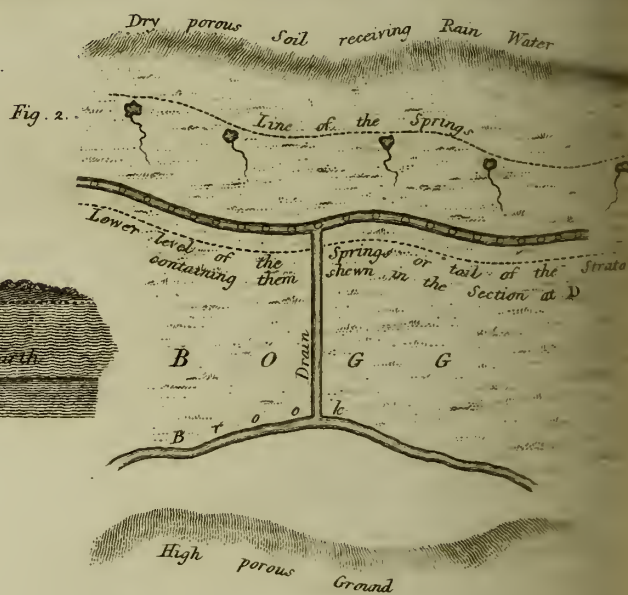 Dry porous Soil receiving Rain Water
Fig. 2.
Line of the Springs
Lower level of the Springs or tail of the Strata
containing them shewn in the Section at D
Drain
BOGG
Brook
High porous Ground